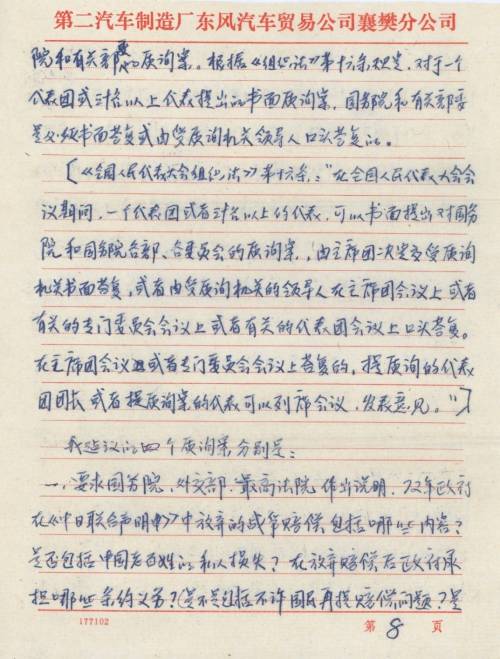 第二汽车制造厂东风汽车贸易公司襄樊分公司
院和有关部委的质询案。根据《组织法》第十六条规定，对于一个
代表团或三十名以上代表提出的书面质询案，国务院和有关部委
是必须书面答复或由受质询机关领导人口头答复的。
〔《全国人民代表大会组织法》第十六条："在全国人民代表大会会
议期间，一个代表团或者三十名以上的代表，可以书面提出对国务
院和国务院各部、各委员会的质询案，由主席团决定交受质询
机关书面答复，或者由受质询机关的领导人在主席团会议上或者
有关的专门委员会会议上或者有关的代表团会议上口头答复。
在主席团会议或者专门委员会会议上答复的，提质询的代表
团团长或者提质询案的代表可以列席会议，发表意见。"〕
我建议的四个质询案分别是：
一、要求国务院、外交部、最高法院作出说明，72年政府
在《中日联合声明》中放弃的战争赔偿包括哪些内容？
是否包括中国老百姓的私人损失？在放弃赔偿后政府承
担哪些条约义务？（是不是包括不许国民再提赔偿问题？是
177102
第 8 页